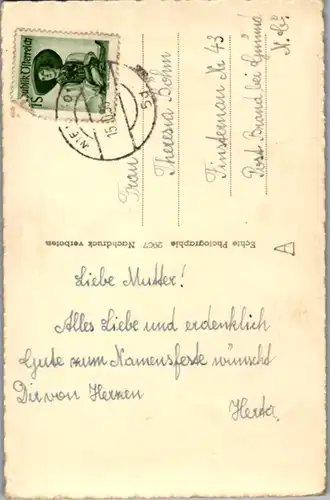 Republik Österreich
1S
WIEN
Frau
Theresia Böhm
Finsternau Nr 43
Post Brand bei Gmünd
N.Ö.
Echte Photographie 2967 Nachdruck verboten
A
Liebe Mutter!
Alles Liebe und erdenklich
Gute zum Namensfeste wünscht
Dir von Herzen
Herta